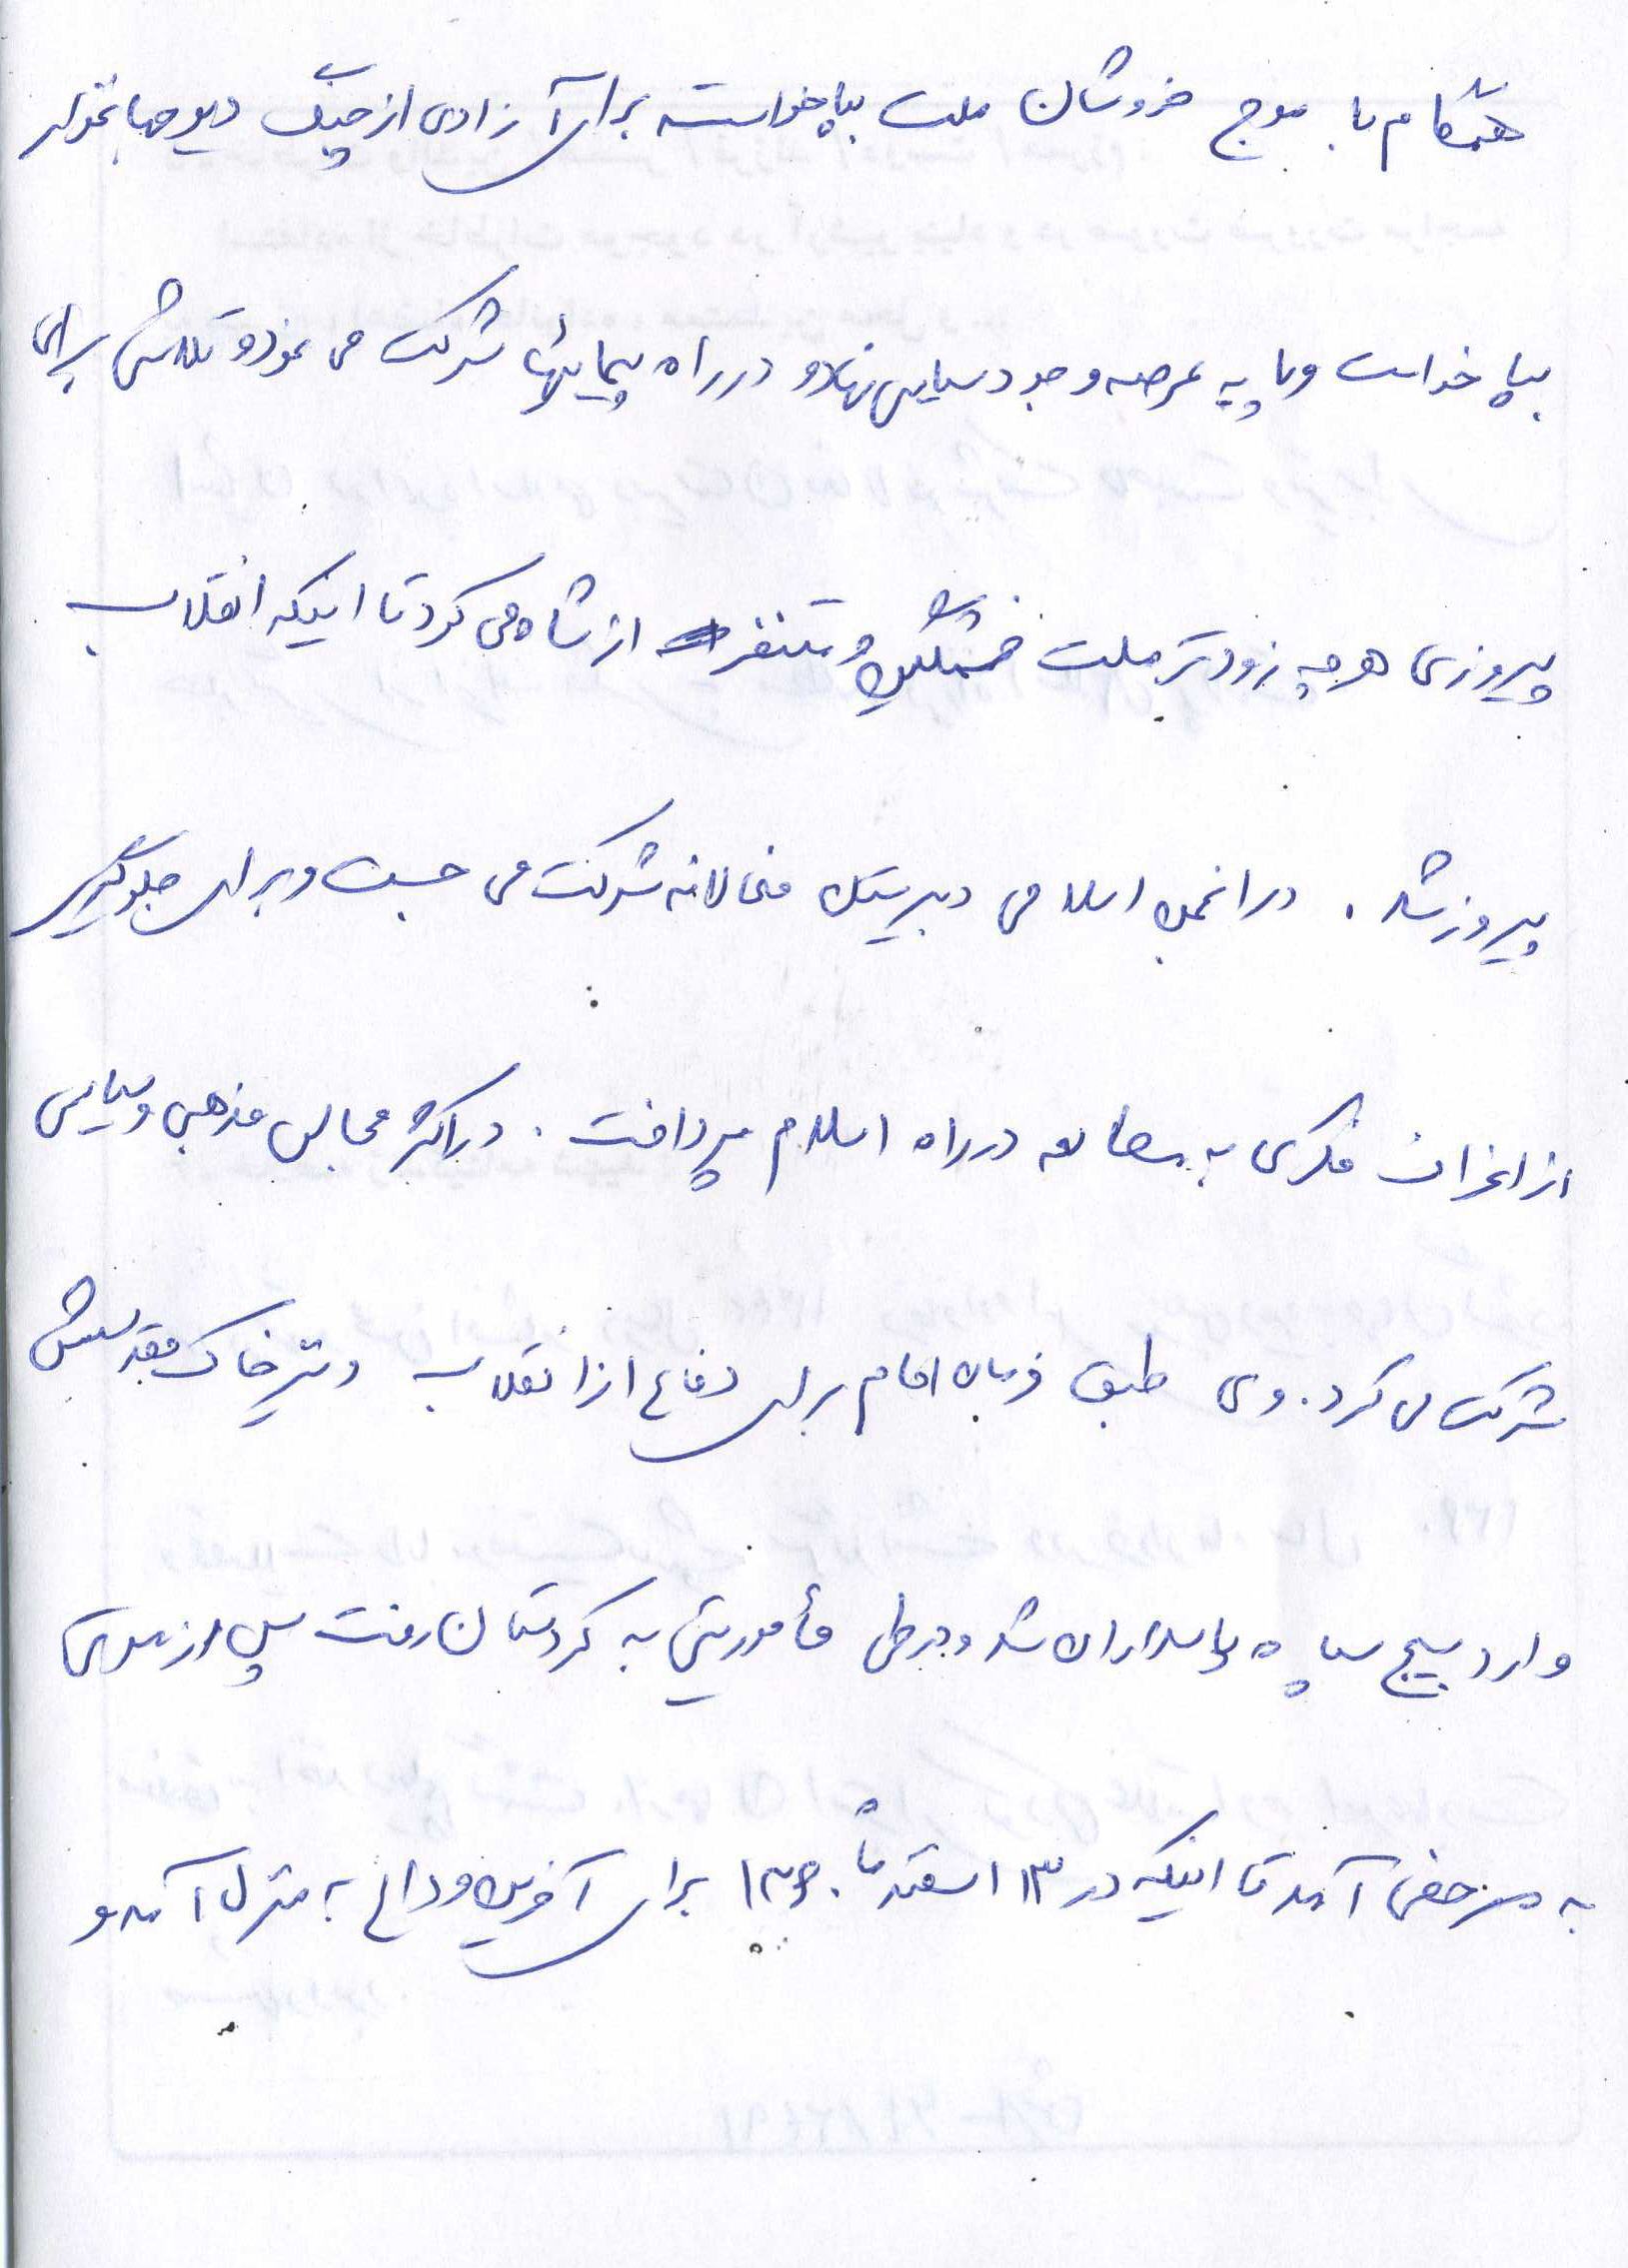 همگام با موج خروشان ملت بپاخواسته برای آزادی از چنگ دیو جهانخوار
بپا خواست و پا به عرصه وجود سیاسی نهاد و در راه پیمایيها شرکت می نمود و تلاش برای
پیروزی هر چه زودتر ملت خشمگین و متنفر از شاه می کرد تا اینکه انقلاب
پیروز شد . در انجمن اسلامی دبیرستان فعالانه شرکت می جست و برای جلوگیری
از انحراف فکری به مطالعه در راه اسلام پرداخت . در اکثر مجالس مذهبی و سیاسی
شرکت می کرد . وی طبق فرمان امام برای دفاع از انقلاب و نیز خاک مقدسش
وارد بسیج سپاه پاسداران شد و در طی مأموریتی به کردستان رفت پس از مدتی
به مرخصی آمد تا اینکه در ۱۳ اسفند ماه ۱۳۶۰ برای آخرین وداع به منزل آمد و